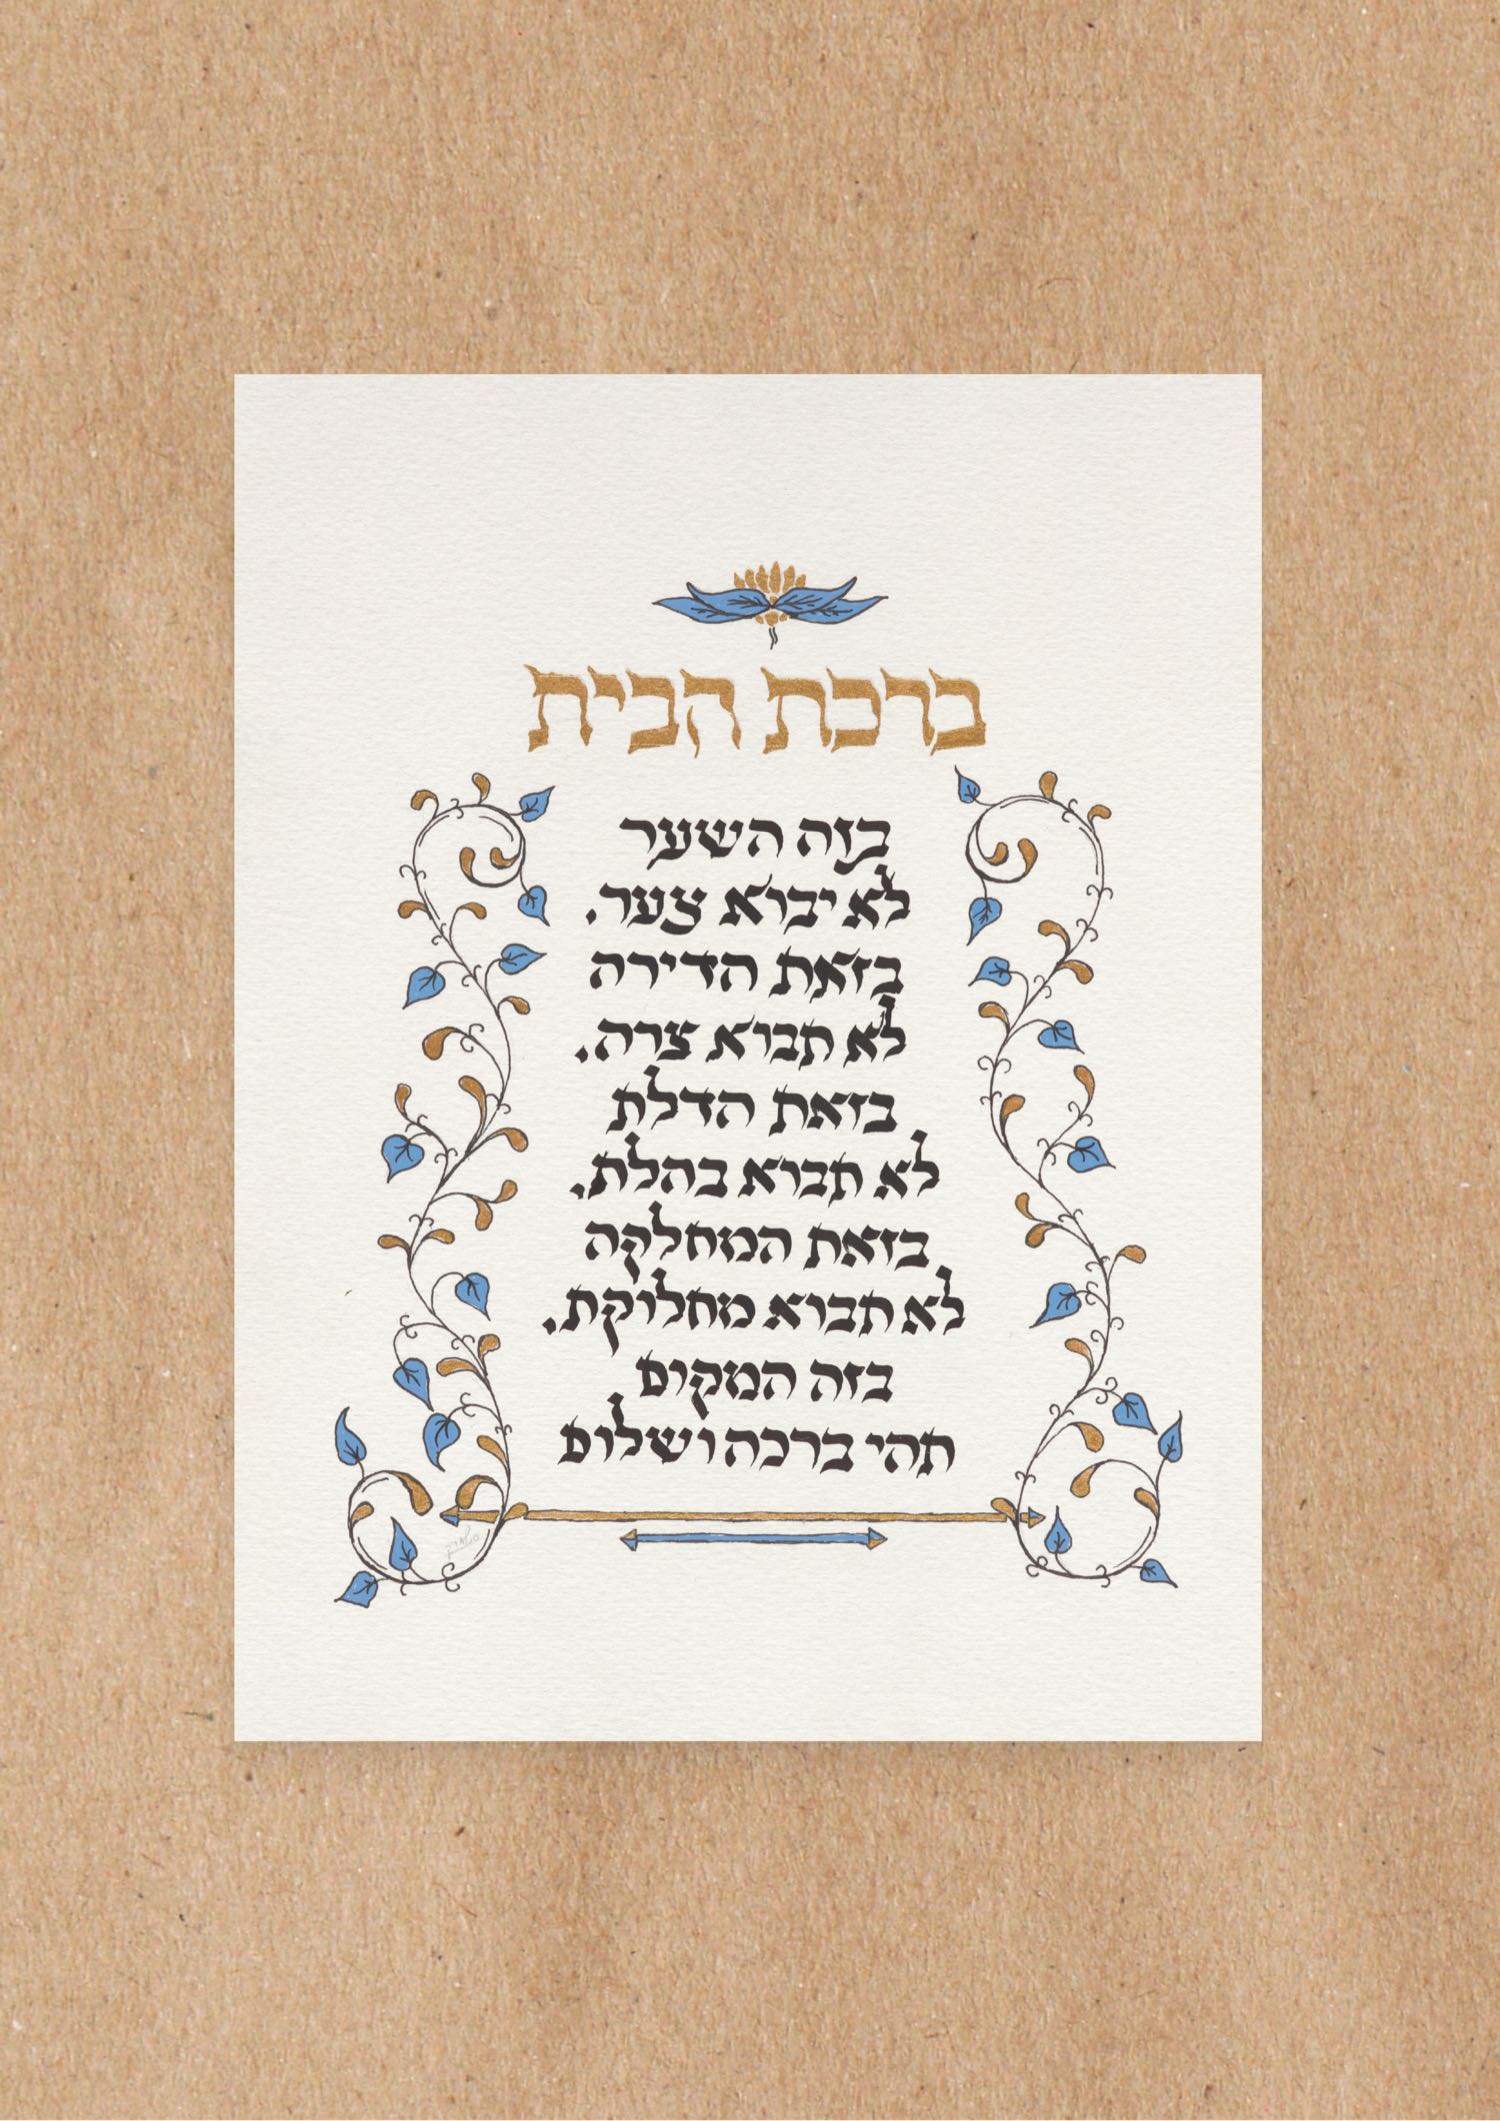 ברכת הבית
בזה השער
לא יבוא צער.
בזאת הדירה
לא תבוא צרה.
בזאת הדלת
לא תבוא בהלת.
בזאת המחלקה
לא תבוא מחלוקת.
בזה המקום
תהי ברכה ושלום